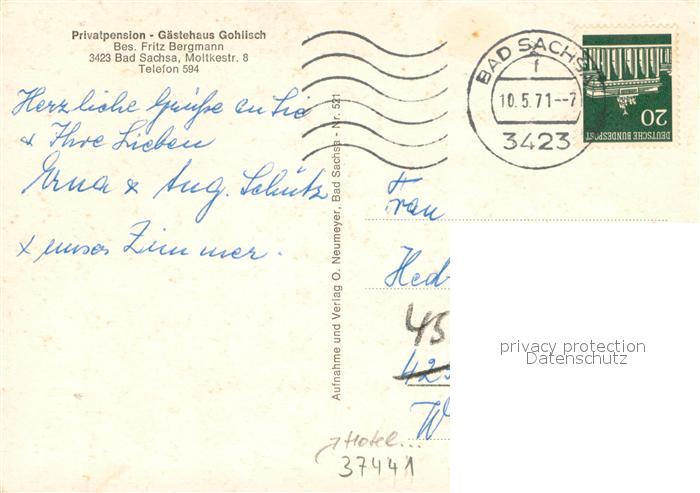 Privatpension - Gästehaus Gohlisch
Bes. Fritz Bergmann
3423 Bad Sachsa, Moltkestr. 8
Telefon 594
Herzliche Grüße an Sie
& Ihre Lieben
Erna & Aug. Schütz
x unser Zimmer.
Aufnahme und Verlag O. Neumeyer, Bad Sachsa - Nr. 521
BAD SACHSA
f
10.5.71--7
3423
20
DEUTSCHE BUNDESPOST
Frau
Hed
45
42
W
privacy protection
Datenschutz
Hotel...
37441